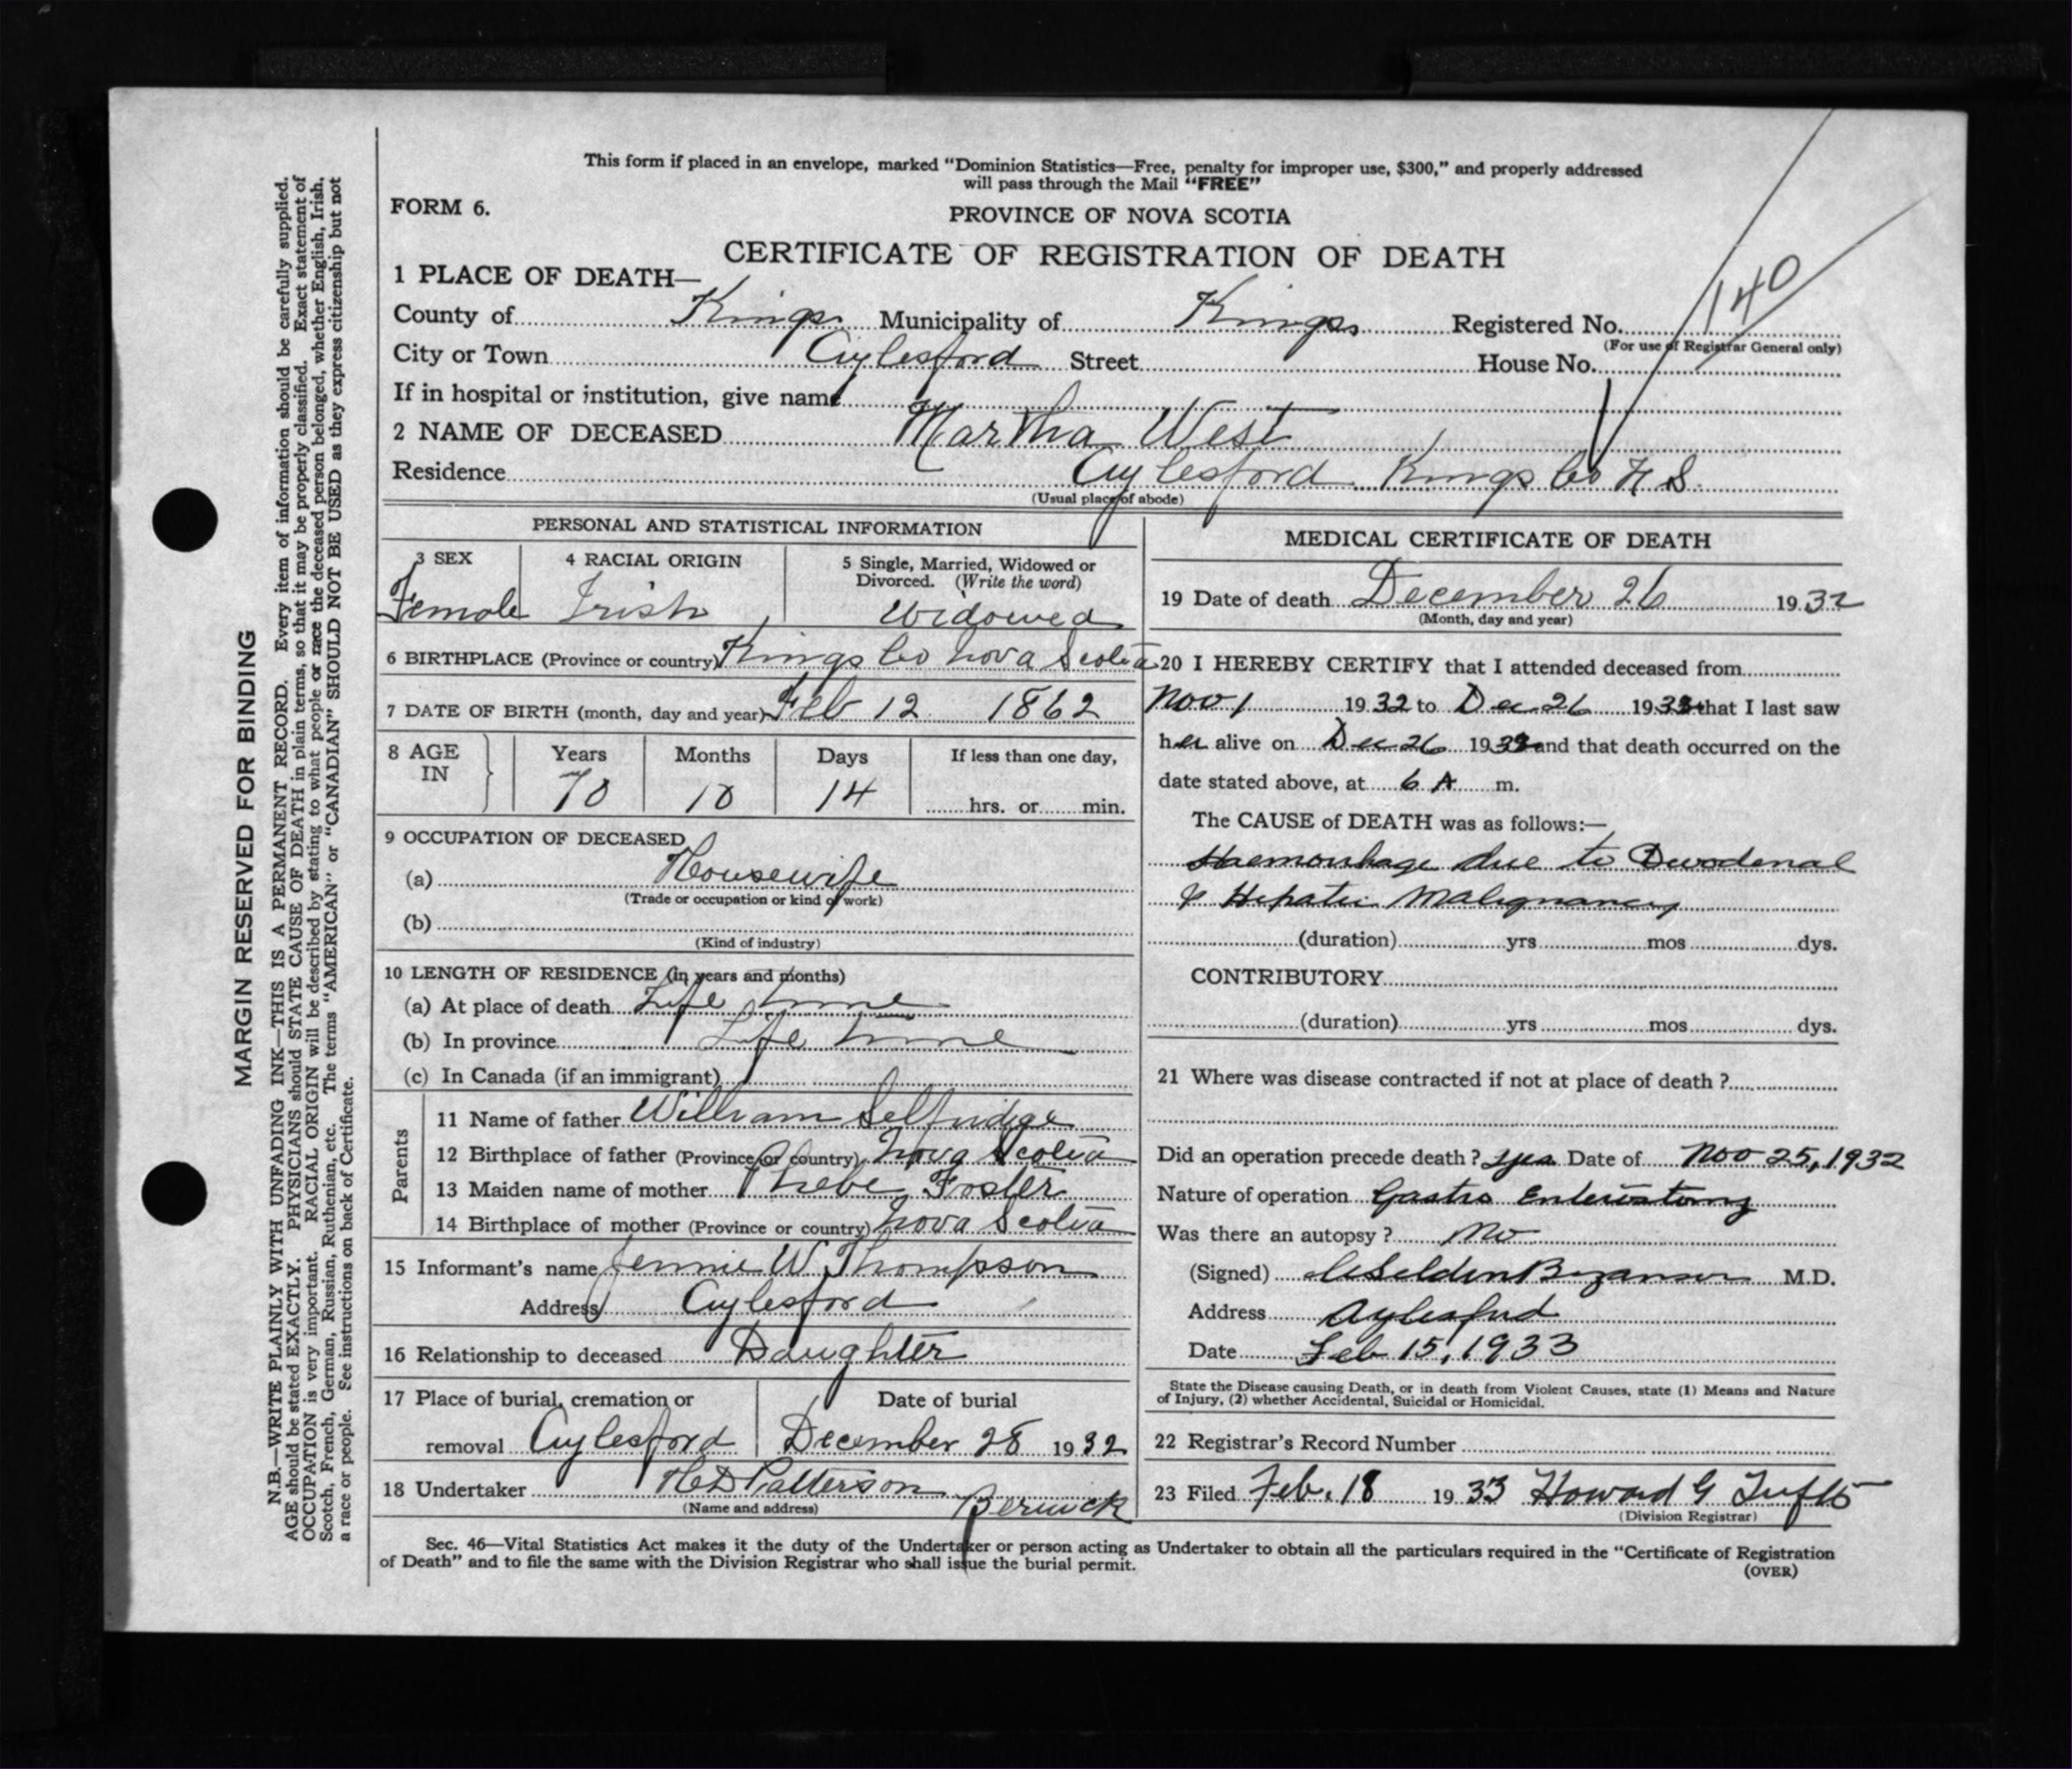 This form if placed in an envelope, marked "Dominion Statistics—Free, penalty for improper use, $300," and properly addressed
will pass through the Mail "FREE"
FORM 6.
PROVINCE OF NOVA SCOTIA
CERTIFICATE OF REGISTRATION OF DEATH
1 PLACE OF DEATH—
County of Kings Municipality of Kings Registered No. 140
(For use of Registrar General only)
City or Town Aylesford Street House No.
If in hospital or institution, give name
2 NAME OF DECEASED Martha West
Residence Aylesford Kings Co N S.
(Usual place of abode)
PERSONAL AND STATISTICAL INFORMATION
3 SEX 4 RACIAL ORIGIN 5 Single, Married, Widowed or
Divorced. (Write the word)
Female Irish Widowed
6 BIRTHPLACE (Province or country) Kings Co Nova Scotia
7 DATE OF BIRTH (month, day and year) Feb 12 1862
8 AGE IN Years Months Days If less than one day,
70 10 14 hrs. or min.
9 OCCUPATION OF DECEASED
(a) Housewife
(Trade or occupation or kind of work)
(b)
(Kind of industry)
10 LENGTH OF RESIDENCE (in years and months)
(a) At place of death Life time
(b) In province Life time
(c) In Canada (if an immigrant)
Parents
11 Name of father William Selfridge
12 Birthplace of father (Province or country) Nova Scotia
13 Maiden name of mother Phebe Foster
14 Birthplace of mother (Province or country) Nova Scotia
15 Informant's name Jennie W Thompson
Address Aylesford
16 Relationship to deceased Daughter
17 Place of burial, cremation or Date of burial
removal Aylesford December 28 1932
18 Undertaker H D Patterson
(Name and address) Berwick
MEDICAL CERTIFICATE OF DEATH
19 Date of death December 26 1932
(Month, day and year)
20 I HEREBY CERTIFY that I attended deceased from
Nov 1 1932 to Dec 26 1932 that I last saw
her alive on Dec 26 1932 and that death occurred on the
date stated above, at 6 A m.
The CAUSE of DEATH was as follows:—
Haemorrhage due to Duodenal
& Hepatic Malignancy
(duration) yrs mos dys.
CONTRIBUTORY
(duration) yrs mos dys.
21 Where was disease contracted if not at place of death ?
Did an operation precede death ? yes Date of Nov 25, 1932
Nature of operation Gastro Enterostomy
Was there an autopsy ? No
(Signed) Selden Bezanson M.D.
Address Aylesford
Date Feb 15, 1933
State the Disease causing Death, or in death from Violent Causes, state (1) Means and Nature
of Injury, (2) whether Accidental, Suicidal or Homicidal.
22 Registrar's Record Number
23 Filed Feb. 18 1933 Howard G Tufts
(Division Registrar)
Sec. 46—Vital Statistics Act makes it the duty of the Undertaker or person acting as Undertaker to obtain all the particulars required in the "Certificate of Registration
of Death" and to file the same with the Division Registrar who shall issue the burial permit.
(OVER)
MARGIN RESERVED FOR BINDING
N.B.—WRITE PLAINLY WITH UNFADING INK—THIS IS A PERMANENT RECORD. Every item of information should be carefully supplied.
AGE should be stated EXACTLY. PHYSICIANS should STATE CAUSE OF DEATH in plain terms, so that it may be properly classified. Exact statement of
OCCUPATION is very important. RACIAL ORIGIN will be described by stating to what people or race the deceased person belonged, whether English, Irish,
Scotch, French, German, Russian, Ruthenian, etc. The terms "AMERICAN" or "CANADIAN" SHOULD NOT BE USED as they express citizenship but not
a race or people. See instructions on back of Certificate.